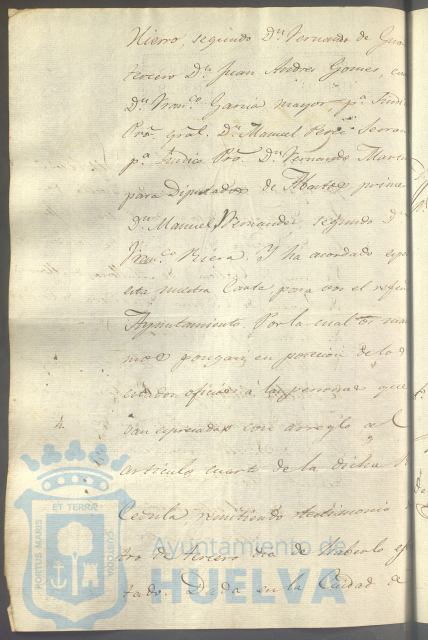 Hierro, segundo Dn. Fernando de
tercero Dn. Juan Andres Gomes,
Dn. Franco. Garcia mayor, pa. Sindi
Pror. gral. Dn. Manuel Serran
pa. Sindico Dn. Fernando Marti
para Diputados de Abastos prime
Dn. Manuel Fernandez, segundo Dn.
Franco. Riera. Y ha acordado
esta nuestra Carta para vos el
Ayuntamiento. Por la cual os ma
mos pongais en posecion de los
citados oficios á las personas que
4.
van espresadas con arreglo al
articulo cuarto de la dicha
Cedula remitiendo testimonio
tro de tercero dia de haberlo
tado. Dada en la Ciudad de
PORTUS MARIS ET TERRÆ CUSTODIA
Ayuntamiento de
HUELVA